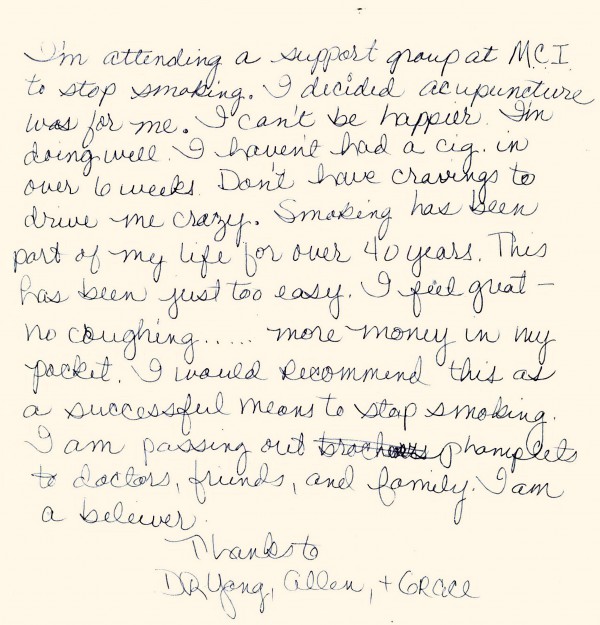 I'm attending a support group at M.C.I.
to stop smoking. I decided acupuncture
was for me. I can't be happier. I'm
doing well. I haven't had a cig. in
over 6 weeks. Don't have cravings to
drive me crazy. Smoking has been
part of my life for over 40 years. This
has been just too easy. I feel great –
no coughing..... more money in my
pocket. I would recommend this as
a successful means to stop smoking.
I am passing out phamplets
to doctors, friends, and family. I am
a believer.
Thanks to
DR Yang, Allen, + GRACE